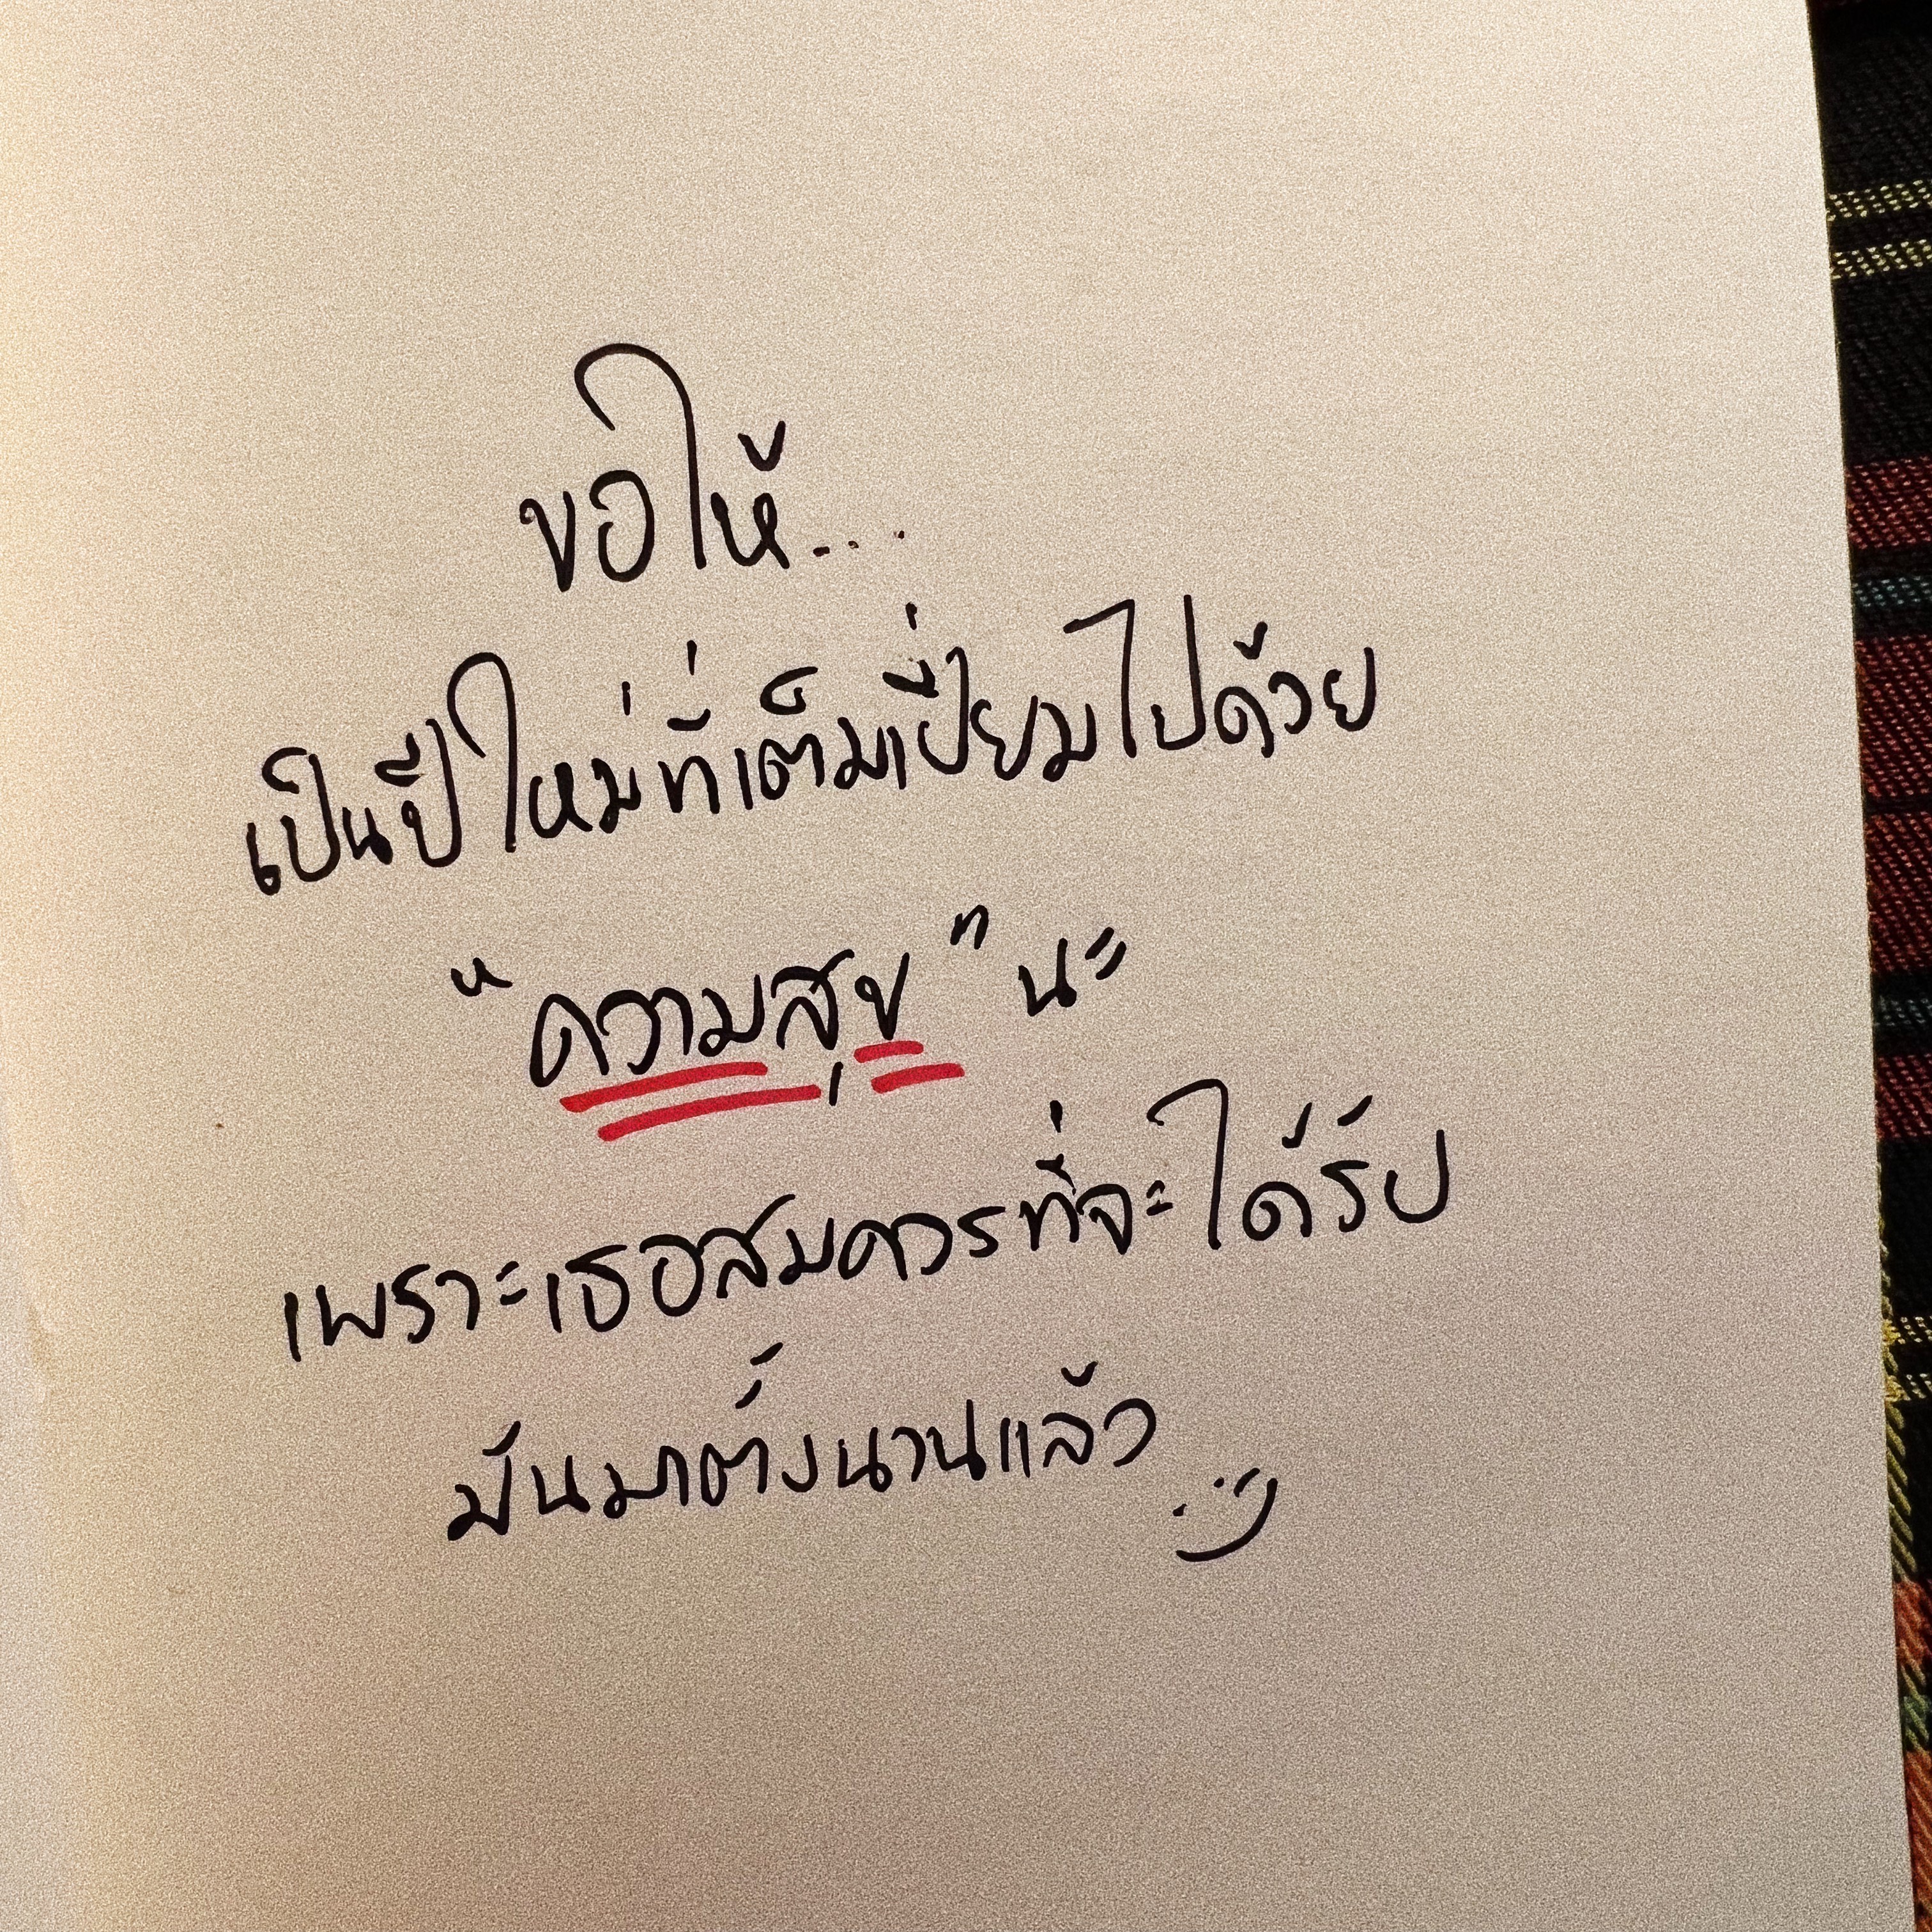 ขอให้...
เป็นปีใหม่ที่เต็มเปี่ยมไปด้วย
"ความสุข" นะ
เพราะเธอสมควรที่จะได้รับ
มันมาตั้งนานแล้ว :)